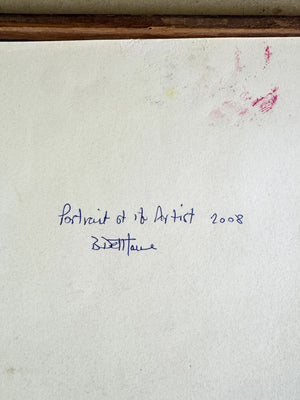 Portrait of the Artist 2008